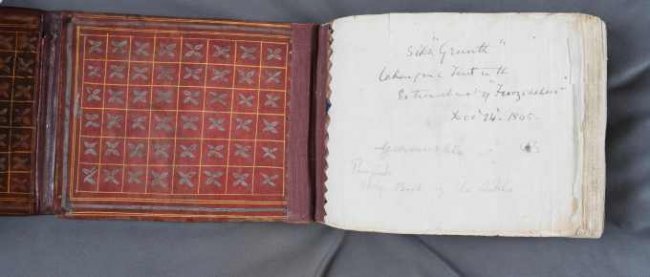 Sikh "Grunth"
taken from a Tent in the
Entrenchment of "Ferozeshah"
Decr 22d. 1845.
Gurmukhi
Punjab
Holy Book of the Sikhs